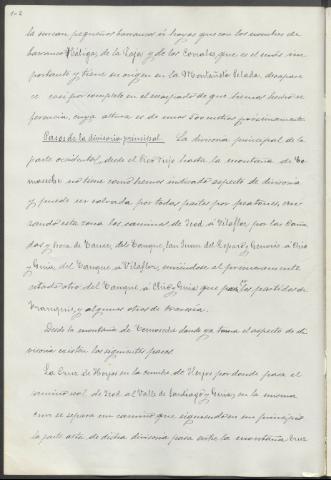 la surcan pequeños barrancos ú hoyas que con los nombres de
barranco de la Vaja y de los Corrales que es el más im
portante y tiene su origen en la Montañeta Pelada, desapare
ce casi por completo en el escarpado de que hemos hecho re
ferencia, cuya altura es de unos 500 metros próximamente.
Pasos de la divisoria principal. La divisoria principal de la
parte occidental, desde el Pico Viejo hasta la montaña de
no tiene como hemos indicado aspecto de divisoria
y puede ser salvada por todas partes por peatones, cru
zando esta zona los caminos de Icod á Vilaflor, por las Caña
das y boca de Tauce, del Tanque, San Juan del Reparo y Genovés á Chio
y Guia, del Tanque á Vilaflor, uniéndose al primeramente
citado otro del Tanque á Chio y Guia que pasa por los partidos de
y algunos otros de travesía.
Desde la montaña de donde ya toma el aspecto de di
visoria existen los siguientes pasos.
La Cruz de Hoyos en la cumbre de Hoyos por donde pasa el
camino real de Icod al Valle de Santiago y Guia; en la misma
cruz se separa un camino que siguiendo en un principio
la parte alta de dicha divisoria pasa entre la montaña Cruz